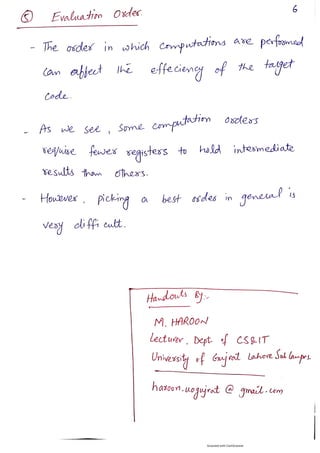 6
⑤ Evaluation Order.
- The order in which computations are performed
can affect the effeciency of the target
code.
- As we see, some computation orders
require fewer registers to hold intermediate
results than others.
- However, picking a best order in general is
very difficult.
Handouts By:-
M. HAROON
Lecturer, Dept. of CS&IT
University of Gujrat Lahore Sub Campus
haroon.uogujrat @ gmail.com
Scanned with CamScanner